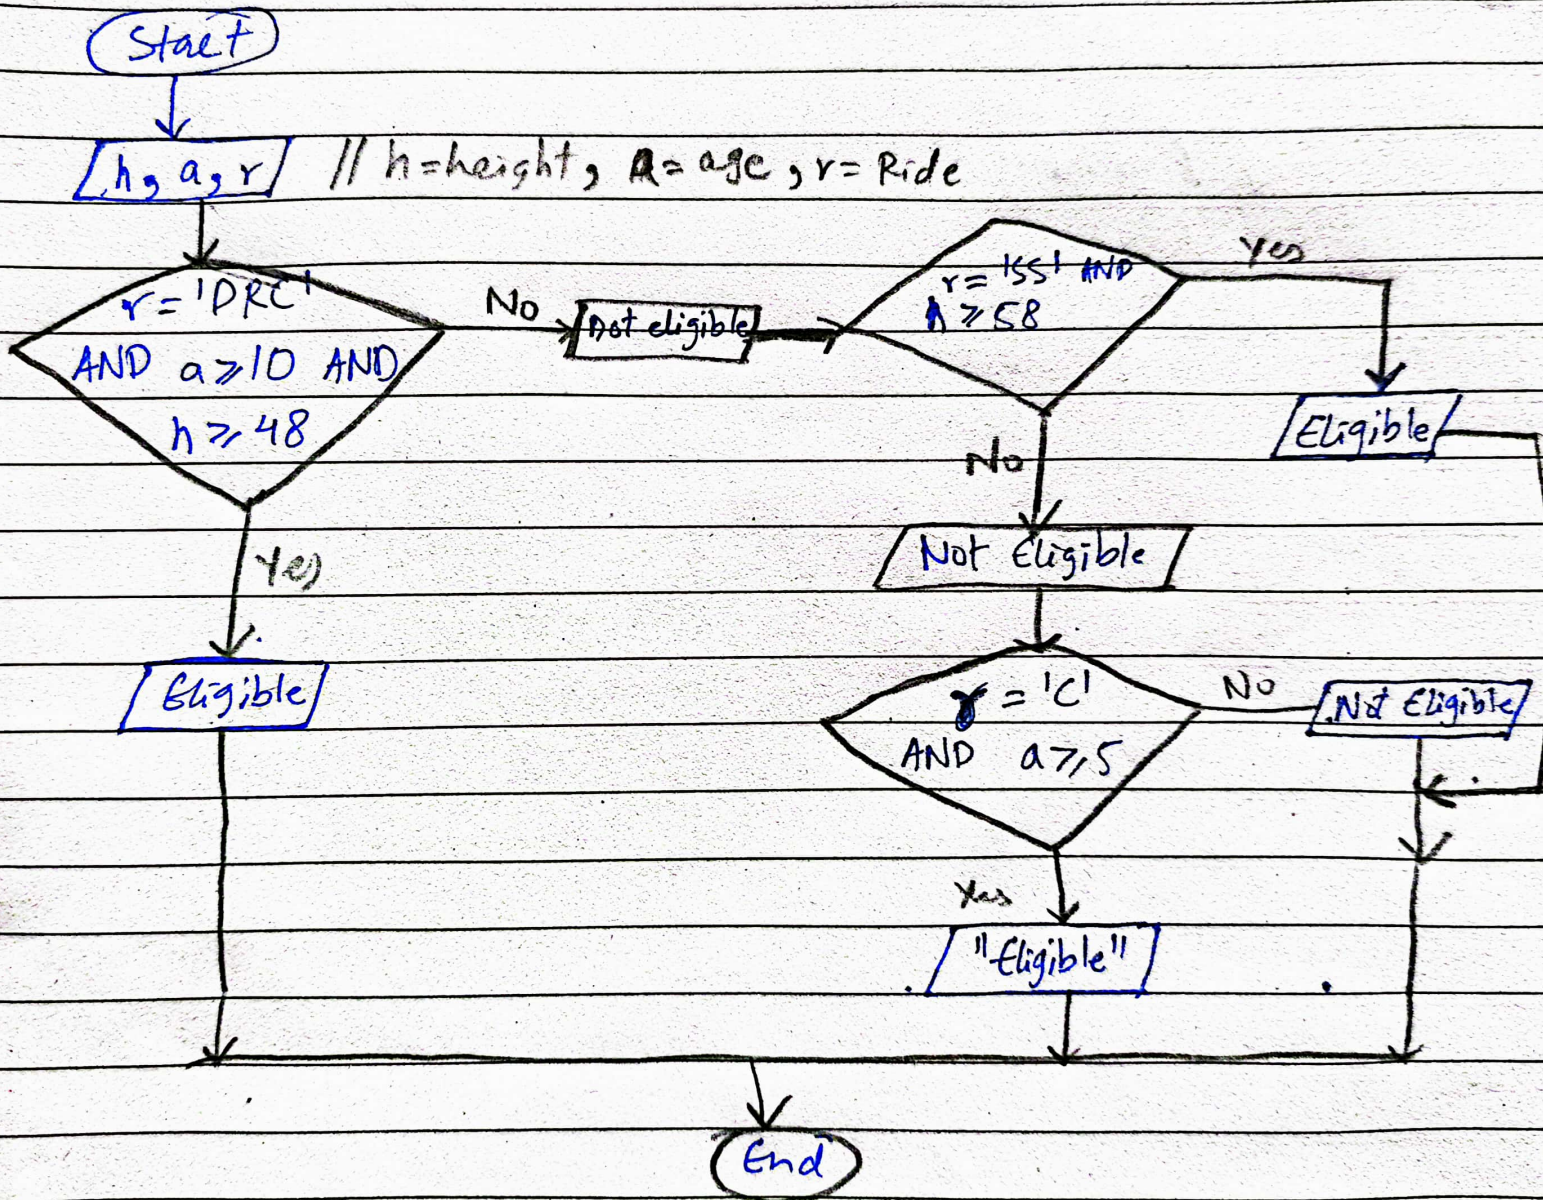 Start
h, a, r // h=height, a= age, r= Ride
r = 'DRC'
AND a ⩾ 10 AND
h ⩾ 48
No
Not eligible
r = 'SS' AND
h ⩾ 58
Yes
Eligible
No
Not Eligible
Yes
Eligible
r = 'C'
AND a ⩾ 5
No
Not Eligible
Yes
"Eligible"
End